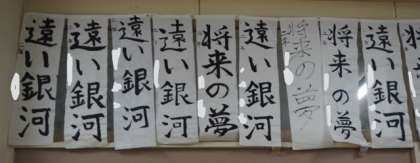 将来の夢
遠い銀河
将来の夢
将来の夢
遠い銀河
将来の夢
遠い銀河
遠い銀河
遠い銀河
遠い銀河